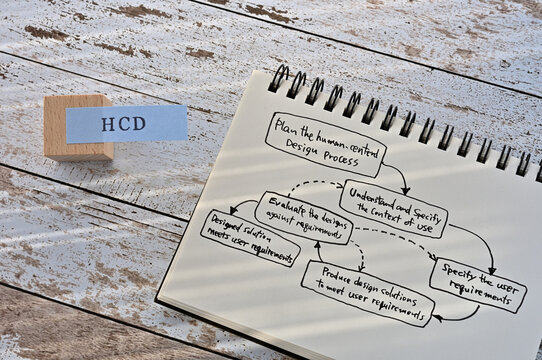 HCD
Plan the human-centred
Design Process
Understand and Specify
the Context of use
Evaluate the designs
against requirements
Designed solution
meets user requirements
Specify the user
requirements
Produce design solutions
to meet user requirements